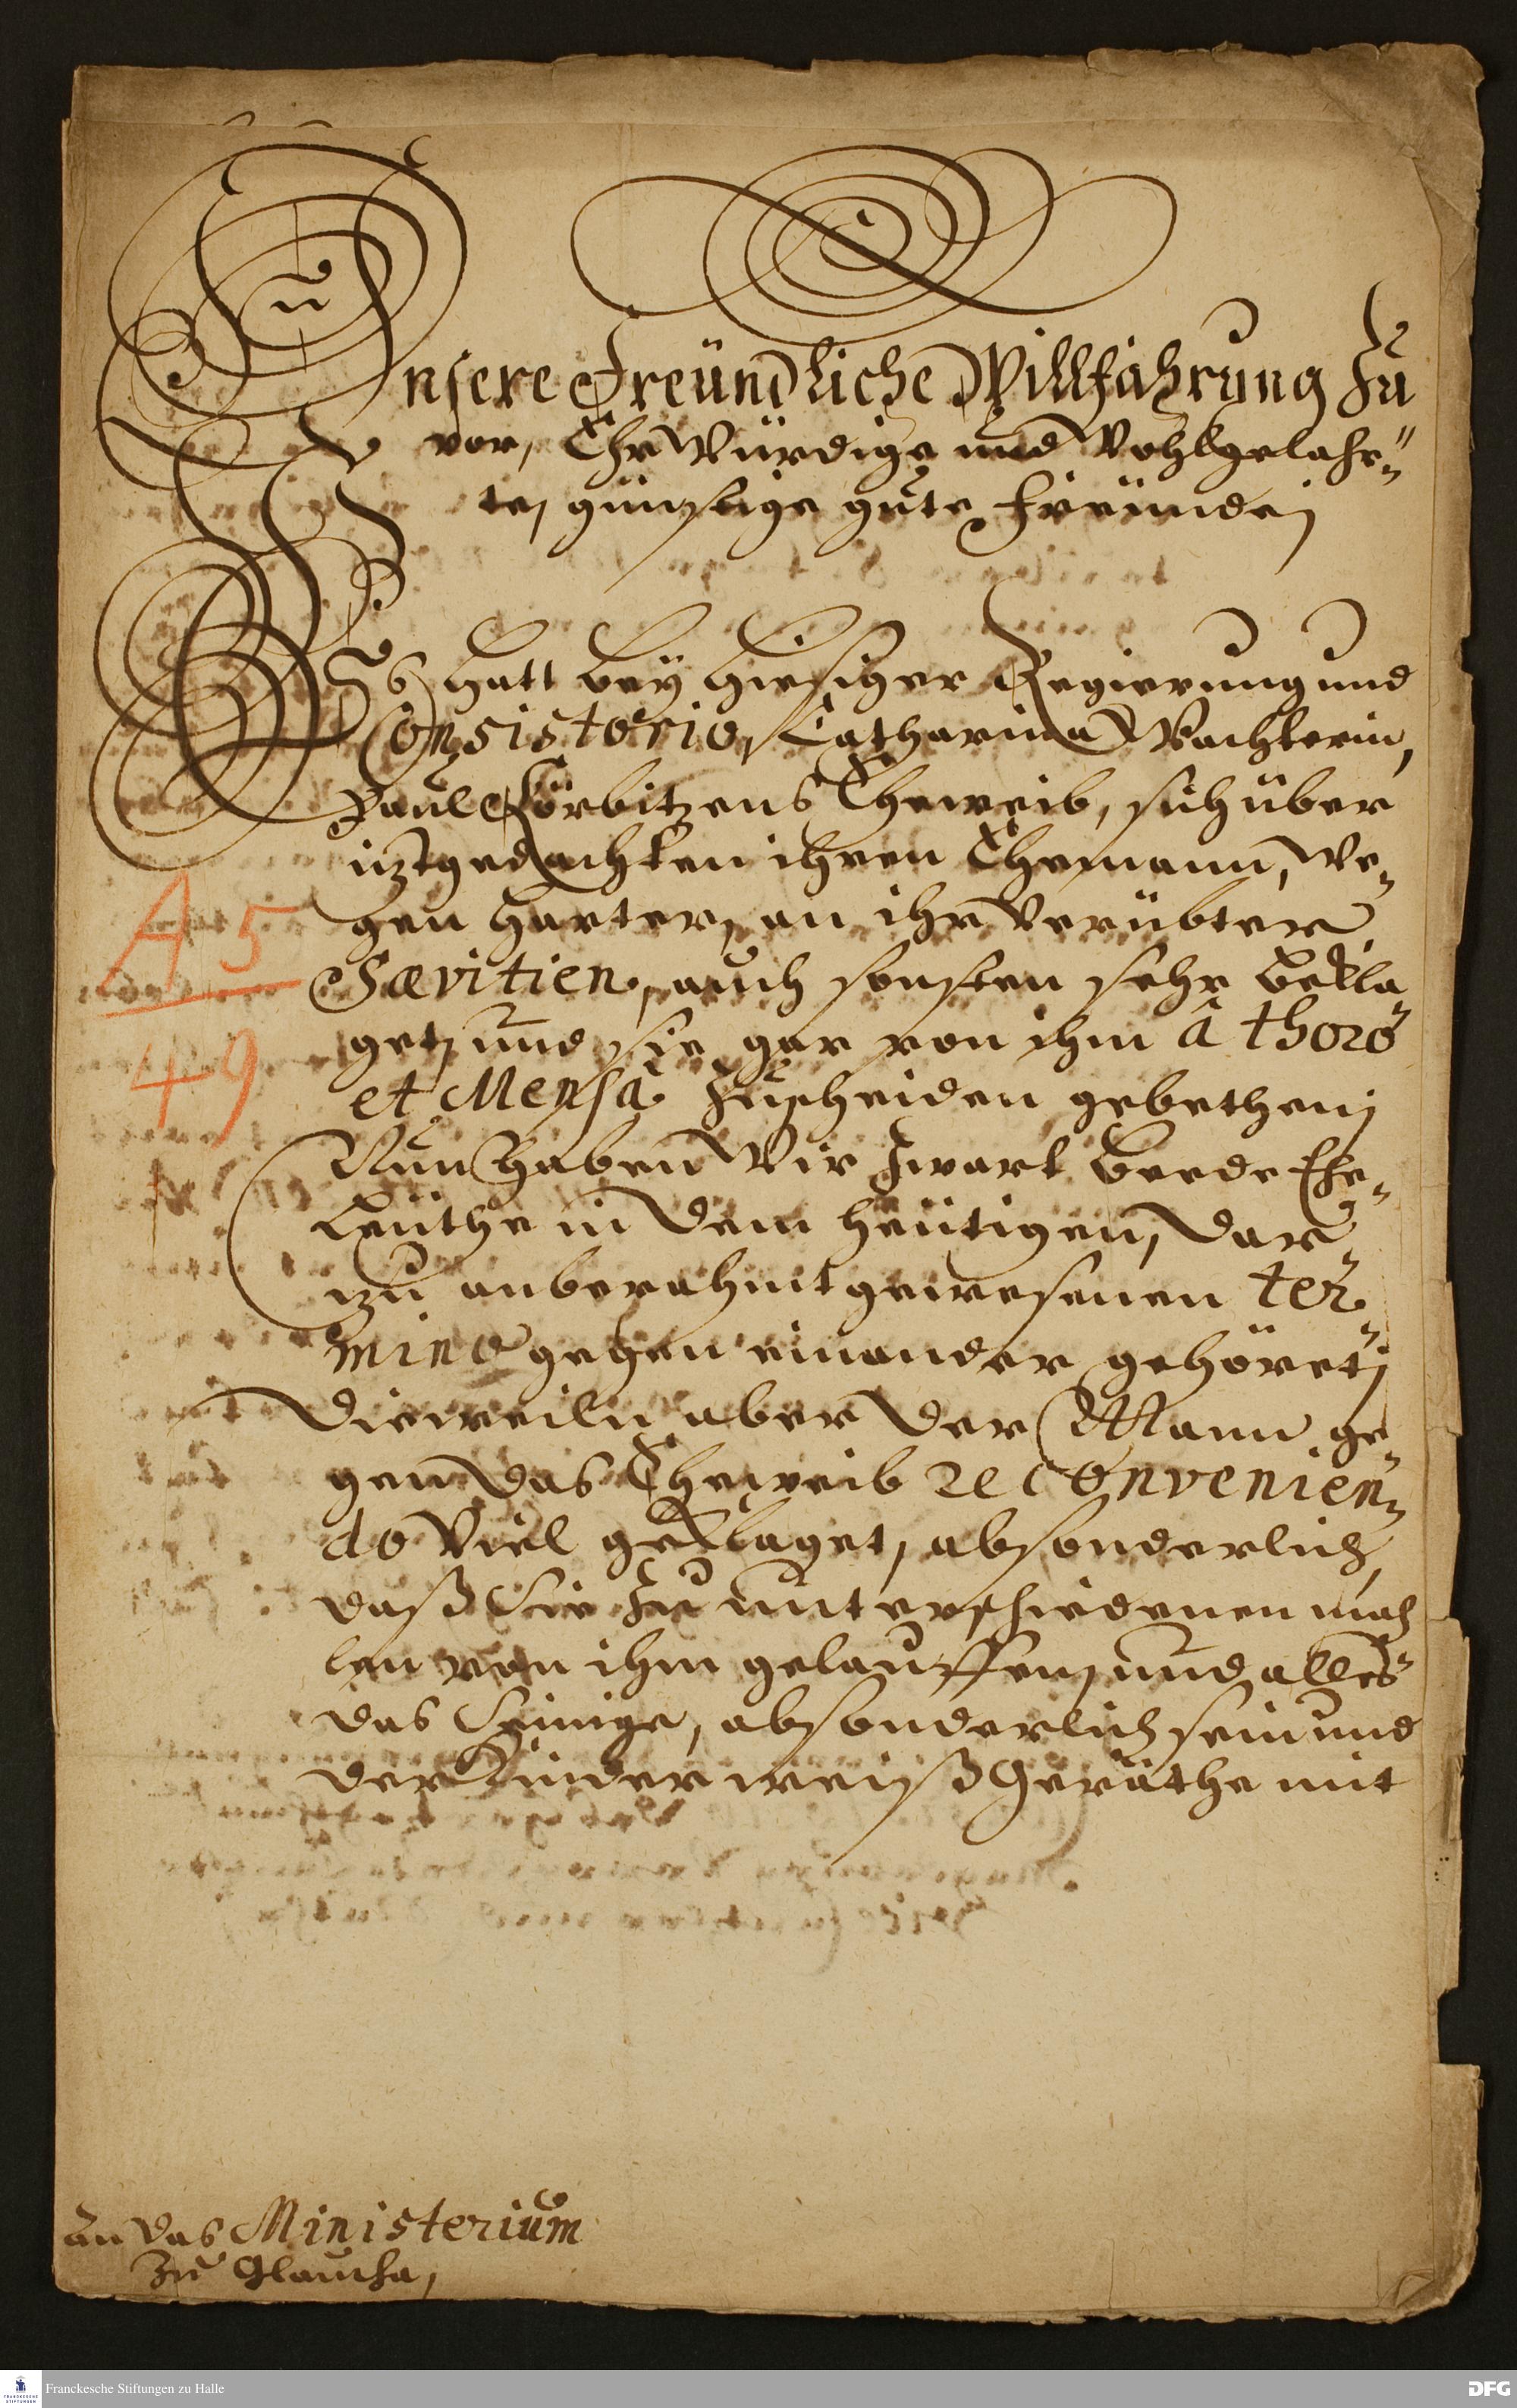 Unsere Freündliche Willfahrung Zu
vor, EhrWürdige und Wohlgelahr-
te, günstige gute Freunde,
Es hatt bey hiesiger Regierung und
Consistorio, Catharina Wachterin,
Paul Körbitzens Eheweib, sich über
itztgedachten ihren Ehemann, We-
gen harter, an ihr Verübter
Sævitien, auch sonsten sehr bekla-
get, und sie gar von ihm â thoro
et Mensa Zuscheiden gebethen,
Nun haben Wir Zwart beede Ehe-
Leuthe in dem heütigen, dar-
zu anberahmt gewesenen ter-
mino gegen einander gehöret,
Dieweiln aber der Mann ge-
gen das Eheweib reconvenien-
do Viel geklaget, absonderlich,
daß Sie Zu unterschiedenen mah-
len von ihm gelauffen, und alles
das Seinige, absonderlich sein und
der Kinder weiß Geräthe mit
A 5
49
An das Ministerium
Zu Glaucha,
Franckesche Stiftungen zu Halle
DFG